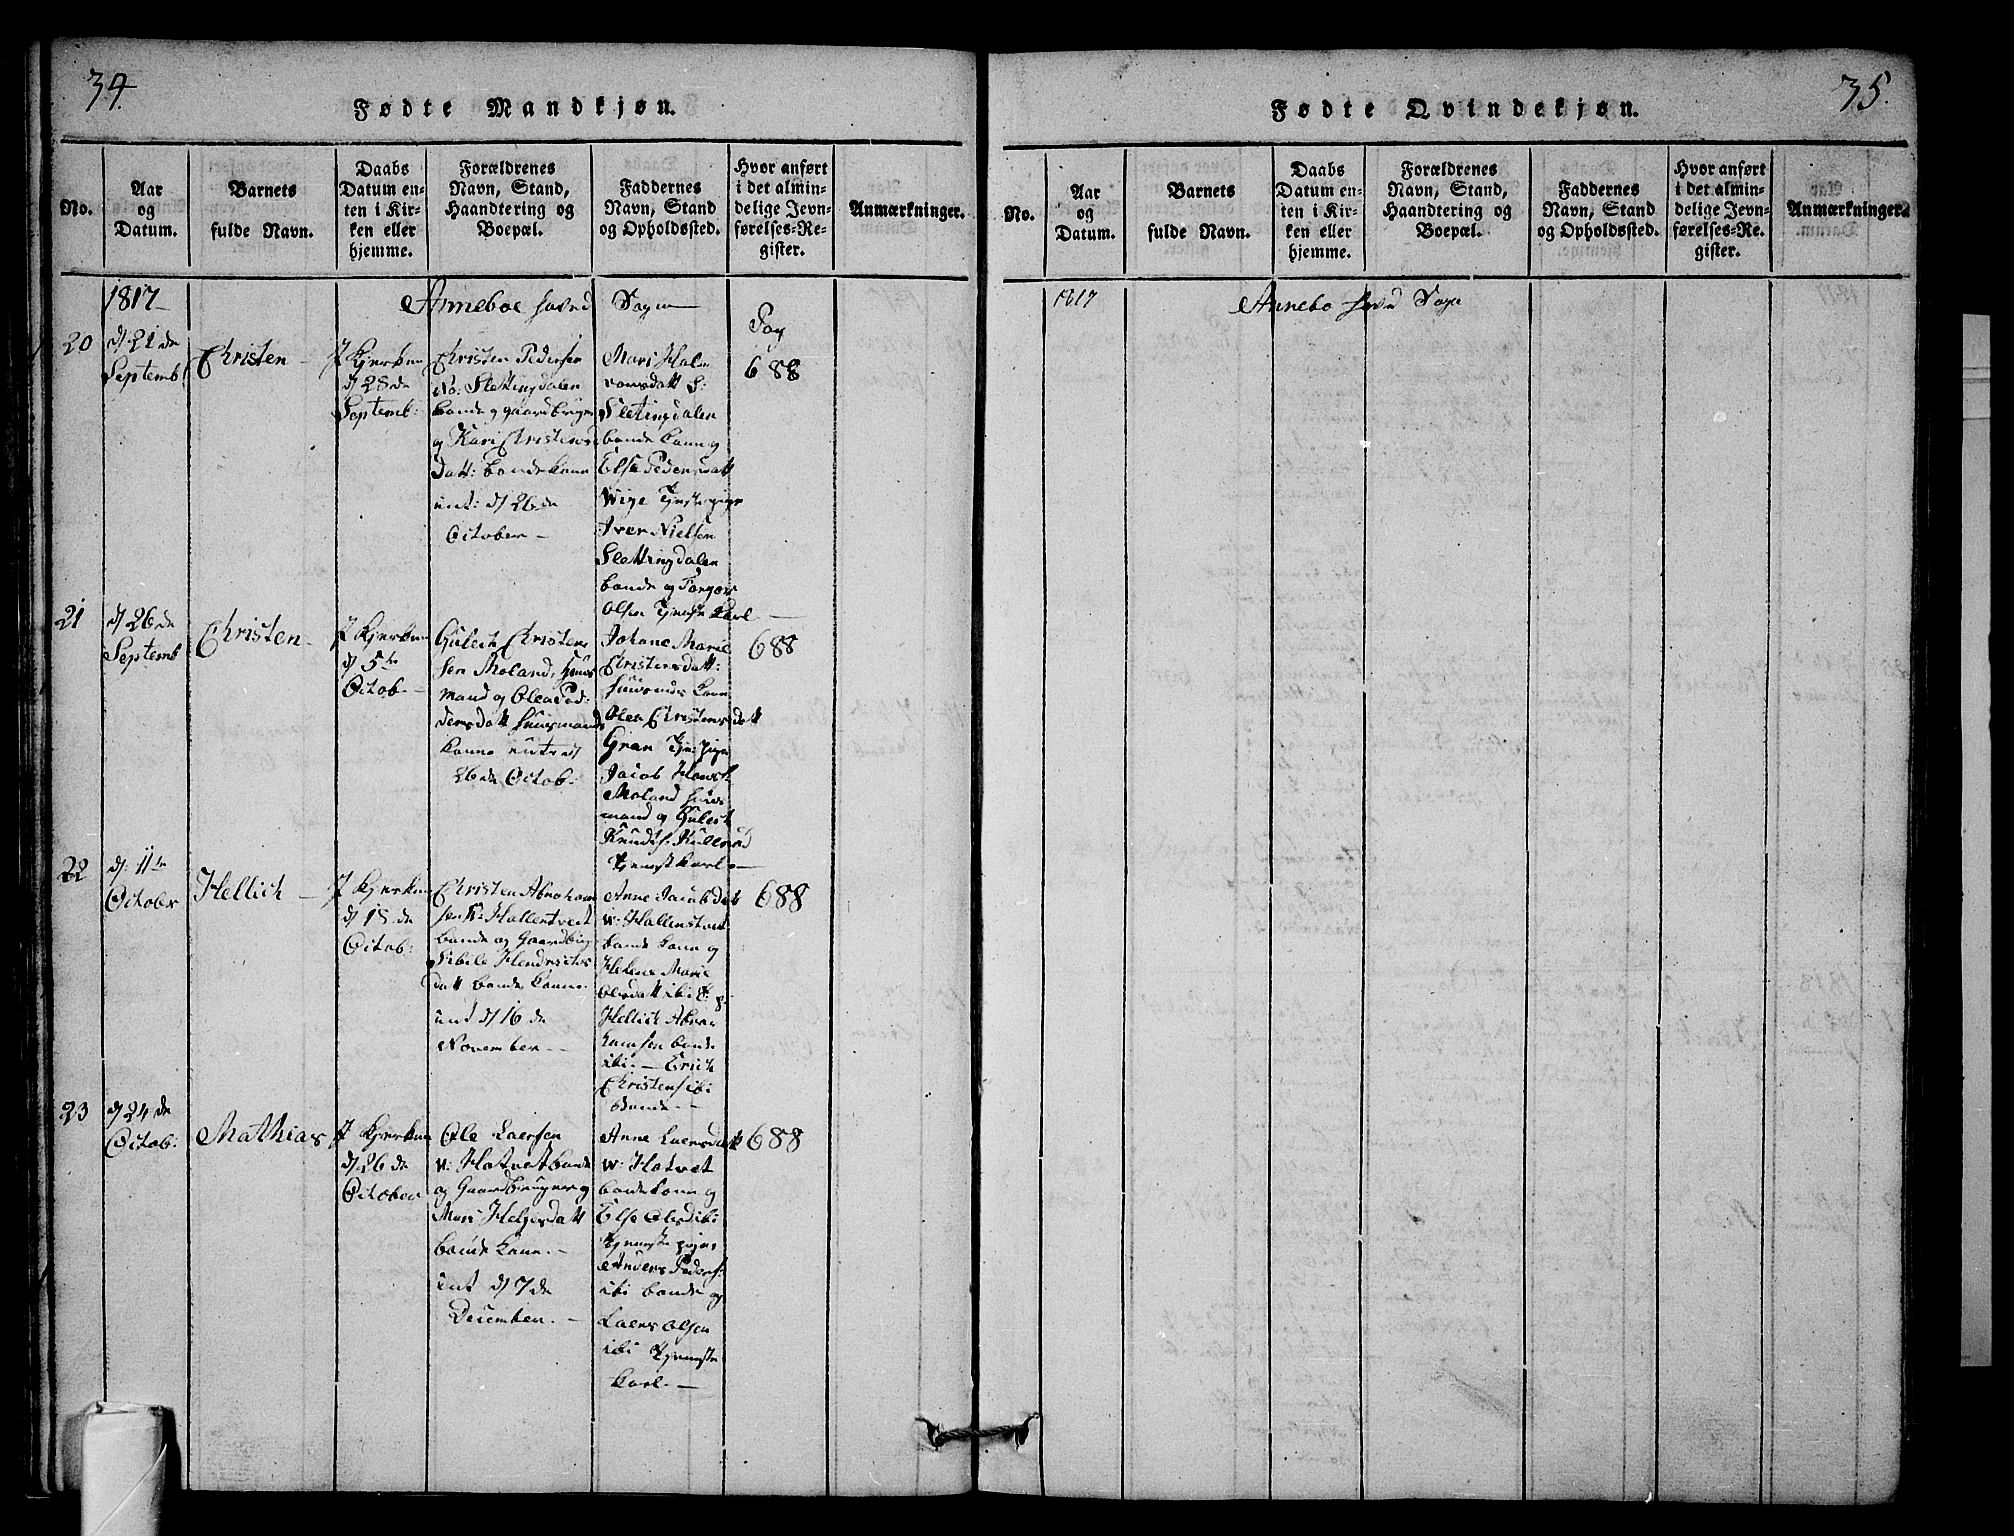 34
Fødte Mandkjøn.
No.
Aar
og
Datum.
Barnets
fulde Navn.
Daabs
Datum en-
ten i Kir-
ken eller
hjemme.
Forældrenes
Navn, Stand,
Haandtering og
Boepæl.
Faddernes
Navn, Stand
og Opholdssted.
Hvor anført
i det almin-
delige Jevn-
førelses-Re-
gister.
Anmærkninger.
1817
Anneboe hoved Sogn
20
d 21 de
Septemb
Christen
I Kjerken
d 28 de
Septemb:
Christen Pedersen
No: Slettingdalen
bonde og gaardbruger
og Kari Christens
datt: bondekone
int: d 26 de
October
Mari Hal
vorsdatt S:
Slettingdalen
bonde kone og
Else Pedersdatt
Wige Tjenstepige
Iver Nielsen
Slettingdalen
bonde og Torger
Olsen Tjenste Karl
Pag
688
21
d 26 de
Septemb
Christen
I Kjerken
d 5 te
Octob.
Guleich Christen
sen Moland, huus
mand og Olea Pe
dersdatt huusmands
kone introd
26 de Octob:
Johane Marie
Christensdatt:
huusmands kone
Olea Christensdatt
Gran Tjen: pige
Jacob Hans
Moland huus
mand og Guleich
Knuds:
Tjenestkarl
688
22
d: 11 te
October
Hellich
I Kjerken
d 18 de
Octob:
Christen Abraham
sen W: Hallentveit
bonde og Gaardbrug
Sibile Hendrichs
datt bonde kone
int d 16 de
November
Anne Jacobsdatt
W: Hallenstveit
bonde kone og
Helene Marie
Olesdatt ibi
Hellich Abra
hamsen bonde
ibi. Erich
Christens ibi
Bonde
688
23
d 24 de
Octob:
Mathias
I Kjerken
d 26 de
October
Ole Laersen
W: Hotvet bonde
og Gaardbruger og
Mari Helgesdatt
bonde kone.
int d 7 de
December.
Anne Laersdatt
W: Hotvet
bondekone og
Else Olesd ibi
Tjeneste pige
Anders Peders:
ibi bonde og
Laers Olsen
ibi Tjeneste
karl.
688
35.
Fødte Qvindekjøn.
No.
Aar
og
Datum.
Barnets
fulde Navn.
Daabs
Datum en-
ten i Kir-
ken eller
hjemme.
Forældrenes
Navn, Stand,
Haandtering og
Boepæl.
Faddernes
Navn, Stand
og Opholdssted.
Hvor anført
i det almin-
delige Jevn-
førelses-Re-
gister.
Anmærkninger.
1817
Annebo hoved Sogn